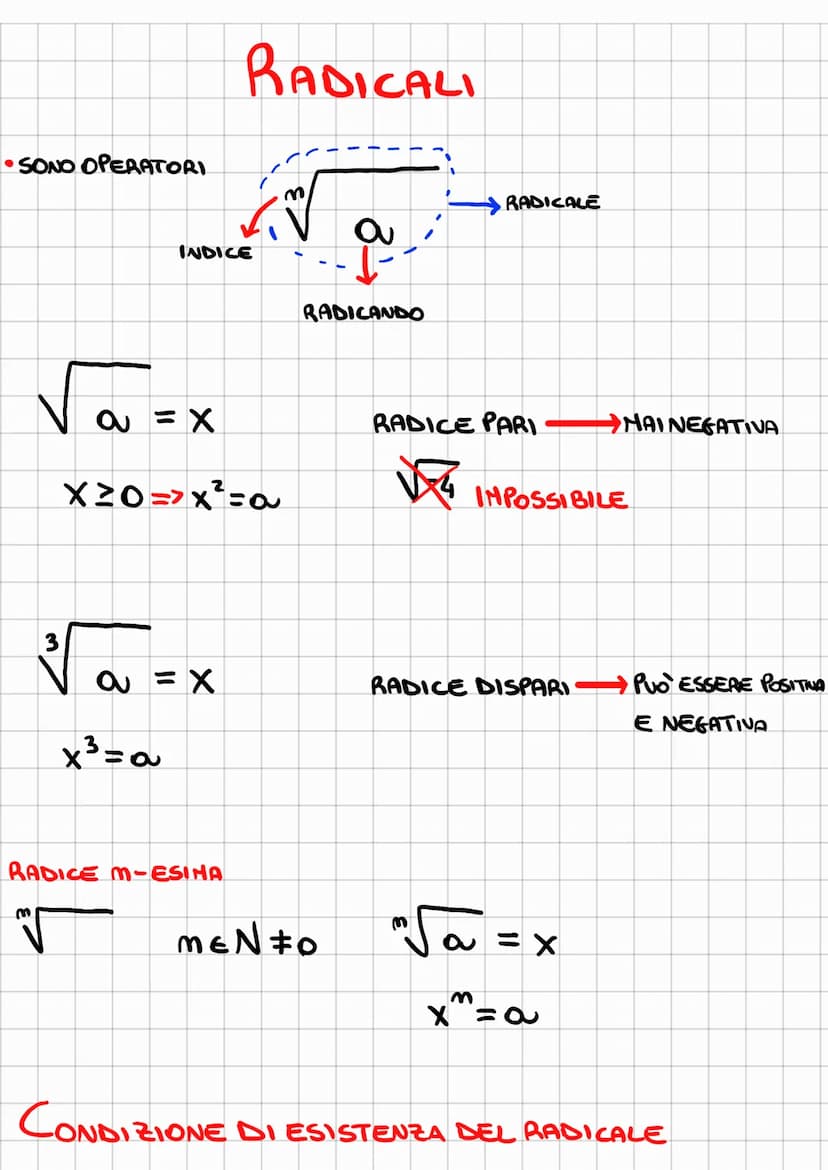 RADICALI
• SONO OPERATORI
m√a
→ RADICALE
INDICE
RADICANDO
√a = x
RADICE PARI → MAI NEGATIVA
x ≥ 0 => x² = a
√-4 IMPOSSIBILE
³√a = x
RADICE DISPARI → PUÒ ESSERE POSITIVA
E NEGATIVA
x³ = a
RADICE m-ESIMA
m√ m ∈ N ≠ 0 m√a = x
xᵐ = a
CONDIZIONE DI ESISTENZA DEL RADICALE